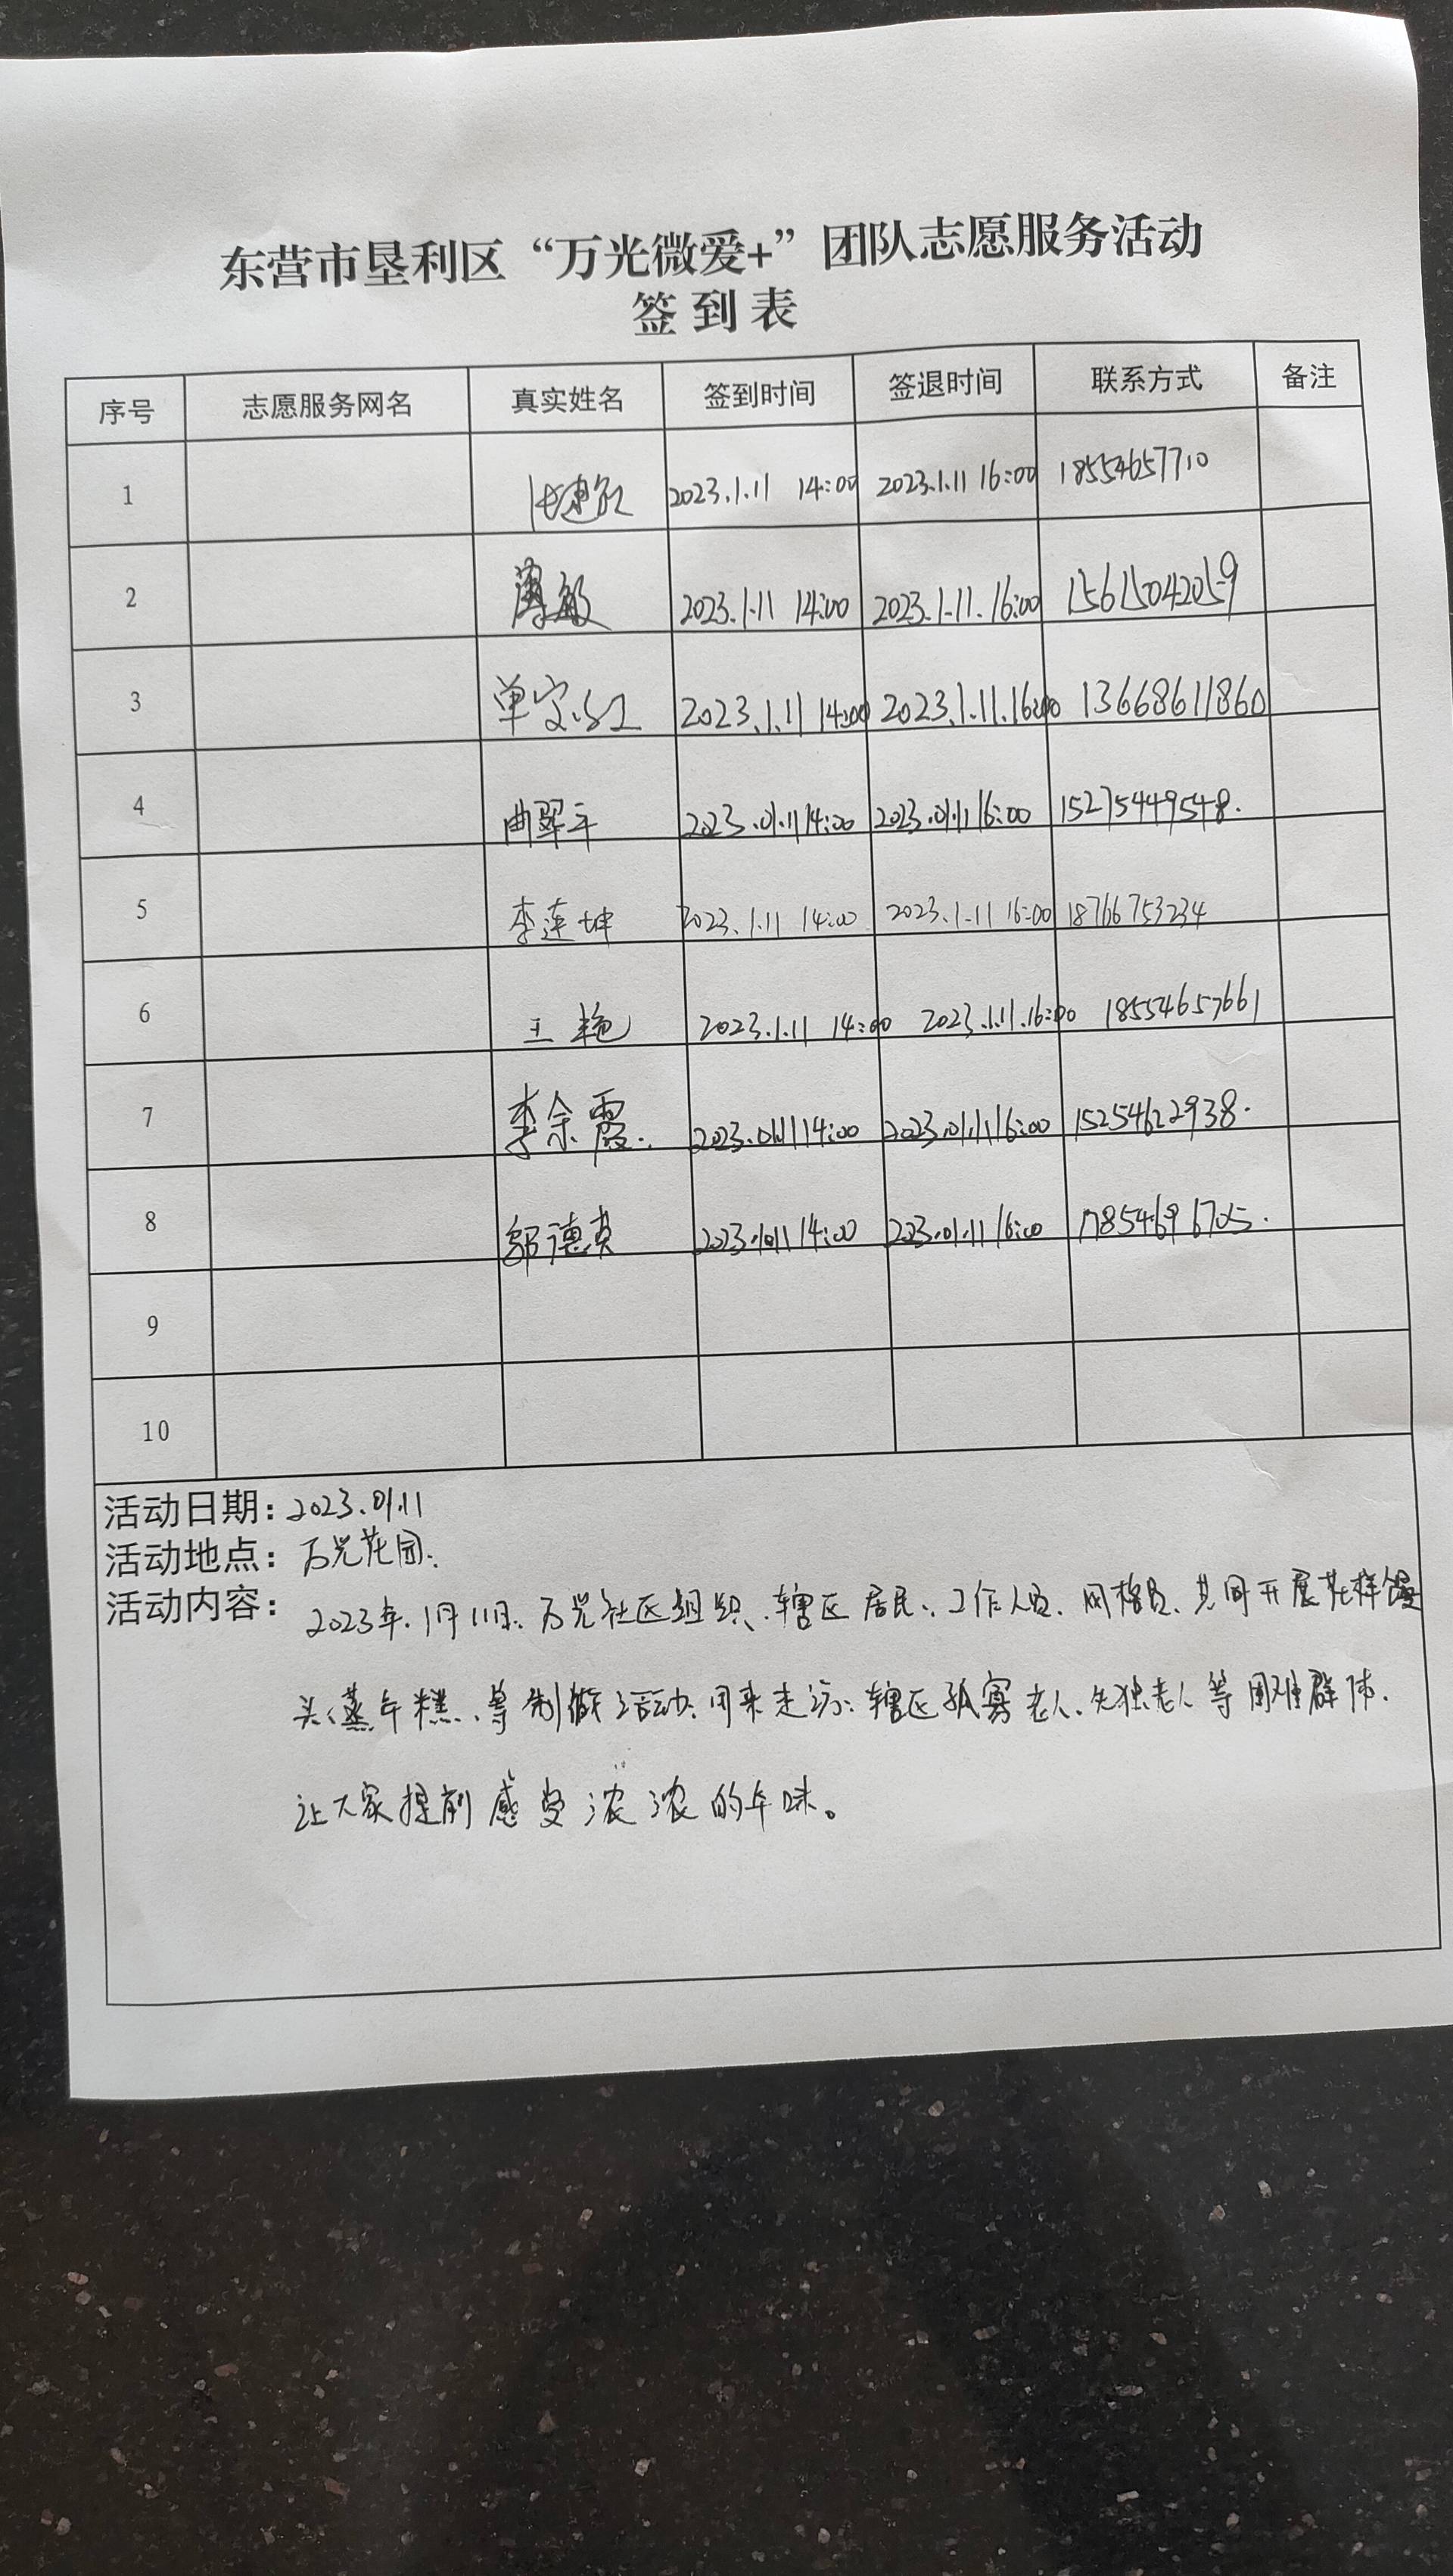 东营市垦利区“万光微爱+”团队志愿服务活动
签到表
序号 志愿服务网名 真实姓名 签到时间 签退时间 联系方式 备注
1 2023.1.11 14:00 2023.1.11 16:00 18554657710
2 薄敏 2023.1.11 14:00 2023.1.11. 16:00 15615042059
3 单宝红 2023.1.11 14:00 2023.1.11.16:00 13668611860
4 曲翠平 2023.01.11 14:00 2023.01.11 16:00 15275449548.
5 李莲坤 2023.1.11 14:00 2023.1.11 16:00 18766753234
6 王艳 2023.1.11 14:00 2023.1.11.16:00 18554657661
7 李余霞. 2023.01.11 14:00 2023.01.11 16:00 15254622938.
8 邹德英 2023.01.11 14:00 2023.01.11 16:00 17854696705.
9
10
活动日期：2023.01.11
活动地点：万光花园.
活动内容：2023年.1月11日.万光社区组织.辖区居民.工作人员.网格员.共同开展花样馒
头.蒸年糕.等制做活动.用来走访.辖区孤寡老人.失独老人等困难群体.
让大家提前感受浓浓的年味。